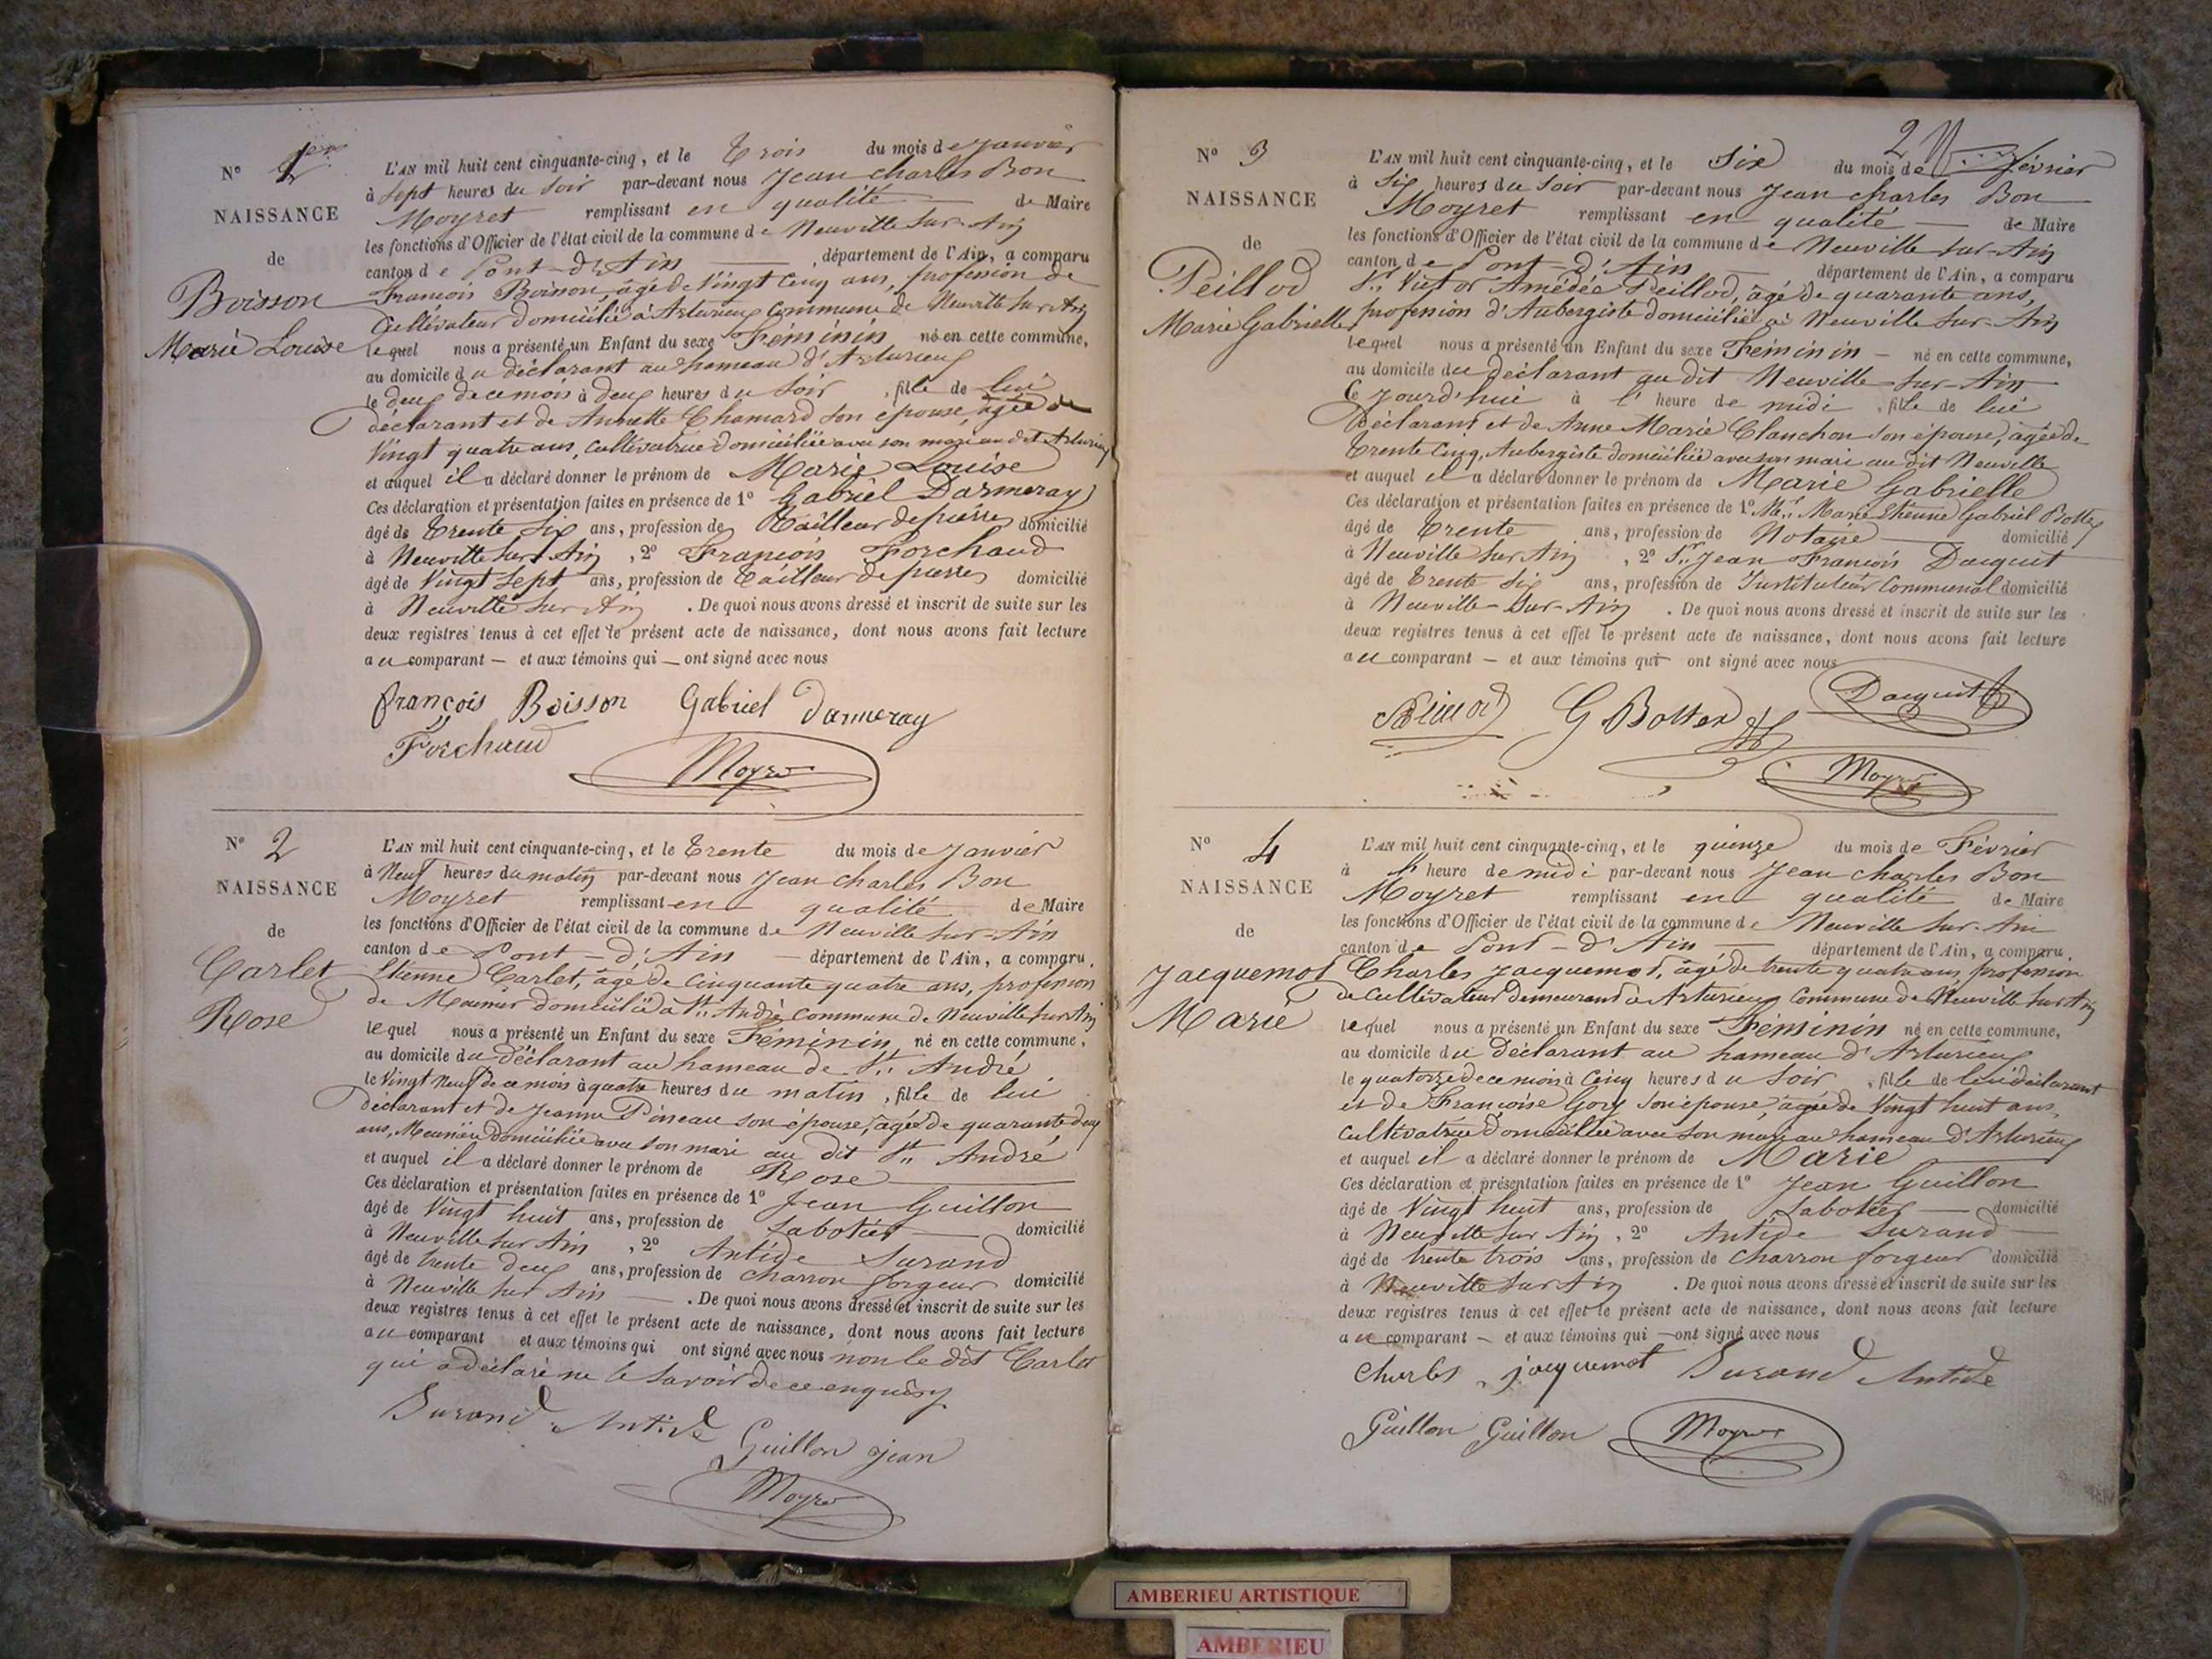 N° 1er
NAISSANCE
de
Boisson
Marie Louise
L'AN mil huit cent cinquante-cinq, et le Trois du mois de Janvier
à Sept heures du Soir par-devant nous Jean Charles Bon
Moyret remplissant en qualité de Maire
les fonctions d'Officier de l'état civil de la commune de Neuville Sur-Ain
canton de Pont-d'Ain, département de l'Ain, a comparu
François Boisson, âgé de Vingt Cinq ans, profession de
Cultivateur domicilié à Arturieux Commune de Neuville Sur Ain
lequel nous a présenté un Enfant du sexe Féminin né en cette commune,
au domicile du déclarant au hameau d'Arturieux
le deux de ce mois à deux heures du Soir, fille de lui
déclarant et de Annette Chamard son épouse, âgée de
Vingt quatre ans, cultivatrice domiciliée avec son mari au dit Arturieux
et auquel il a déclaré donner le prénom de Marie Louise
Ces déclaration et présentation faites en présence de 1° Gabriel Darmeray
âgé de Trente Six ans, profession de Tailleur de pierres domicilié
à Neuville Sur Ain, 2° François Forchaud
âgé de Vingt Sept ans, profession de Tailleur de pierres domicilié
à Neuville Sur Ain. De quoi nous avons dressé et inscrit de suite sur les
deux registres tenus à cet effet le présent acte de naissance, dont nous avons fait lecture
au comparant — et aux témoins qui — ont signé avec nous
françois Boisson Gabriel Darmeray
Forchaud
Moyret
N° 2
NAISSANCE
de
Carlet
Rose
L'AN mil huit cent cinquante-cinq, et le Trente du mois de Janvier
à Neuf heures du matin par-devant nous Jean Charles Bon
Moyret remplissant en qualité de Maire
les fonctions d'Officier de l'état civil de la commune de Neuville Sur-Ain
canton de Pont-d'Ain — département de l'Ain, a comparu,
Etienne Carlet, âgé de Cinquante quatre ans, profession
de Meunier domicilié à St André Commune de Neuville Sur Ain
lequel nous a présenté un Enfant du sexe Féminin, né en cette commune,
au domicile du Déclarant au hameau de St André
le Vingt Neuf de ce mois à quatre heures du matin, fille de lui
déclarant et de Jeanne Pineau son épouse, âgée de quarante deux
ans, Meunière domiciliée avec son mari au dit St André
et auquel il a déclaré donner le prénom de Rose
Ces déclaration et présentation faites en présence de 1° Jean Guillon
âgé de Vingt huit ans, profession de Sabotier domicilié
à Neuville Sur Ain, 2° Antide Durand
âgé de trente deux ans, profession de charron forgeur domicilié
à Neuville Sur Ain. De quoi nous avons dressé et inscrit de suite sur les
deux registres tenus à cet effet le présent acte de naissance, dont nous avons fait lecture
au comparant et aux témoins qui ont signé avec nous non le dit Carlet
qui a déclaré ne le Savoir de ce enquis
Durand Antide Guillon jean
Moyret
2
N° 3
NAISSANCE
de
Peillod
Marie Gabrielle
L'AN mil huit cent cinquante-cinq, et le Six du mois de Février
à Six heures du Soir par-devant nous Jean Charles Bon
Moyret remplissant en qualité — de Maire
les fonctions d'Officier de l'état civil de la commune de Neuville-sur-Ain
canton de Pont-d'Ain département de l'Ain, a comparu
Sr Victor Amédée Peillod, âgé de quarante ans,
profession d'Aubergiste domicilié à Neuville Sur-Ain
lequel nous a présenté un Enfant du sexe Féminin — né en cette commune,
au domicile du déclarant au dit Neuville-Sur-Ain
Ce Jourd'hui à l'heure de midi, fille de lui
Déclarant et de Anne Marie Clanchon son épouse, âgée de
Trente Cinq, Aubergiste domiciliée avec son mari au dit Neuville
et auquel il a déclaré donner le prénom de Marie Gabrielle
Ces déclaration et présentation faites en présence de 1° Mr Marie Etienne Gabriel Bottex
âgé de Trente ans, profession de Notaire domicilié
à Neuville Sur Ain, 2° Sr Jean François Dacquit
âgé de Trente Six ans, profession de Instituteur Communal domicilié
à Neuville-Sur-Ain. De quoi nous avons dressé et inscrit de suite sur les
deux registres tenus à cet effet le présent acte de naissance, dont nous avons fait lecture
au comparant — et aux témoins qui ont signé avec nous
Peillod G Bottex Dacquit
Moyret
N° 4
NAISSANCE
de
Jacquemot
Marie
L'AN mil huit cent cinquante-cinq, et le quinze du mois de Février
à l'heure de midi par-devant nous Jean Charles Bon
Moyret remplissant en qualité de Maire
les fonctions d'Officier de l'état civil de la commune de Neuville Sur-Ain
canton de Pont-d'Ain — département de l'Ain, a comparu,
Charles Jacquemot, âgé de trente quatre ans, profession
de Cultivateur demeurant à Arturieux Commune de Neuville Sur Ain
lequel nous a présenté un Enfant du sexe Féminin né en cette commune,
au domicile du Déclarant au hameau d'Arturieux
le quatorze de ce mois à Cinq heures du Soir, fille de lui déclarant
et de Françoise Gory Son épouse, âgée de Vingt huit ans,
Cultivatrice domiciliée avec Son mari au hameau d'Arturieux
et auquel il a déclaré donner le prénom de Marie
Ces déclaration et présentation faites en présence de 1° Jean Guillon
âgé de Vingt huit ans, profession de Sabotier — domicilié
à Neuville Sur Ain, 2° Antide Durand
âgé de trente trois ans, profession de Charron forgeur domicilié
à Neuville Sur Ain. De quoi nous avons dressé et inscrit de suite sur les
deux registres tenus à cet effet le présent acte de naissance, dont nous avons fait lecture
au comparant — et aux témoins qui — ont signé avec nous
Charles jacquemot Durand Antide
Guillon Guillon Moyret
AMBERIEU ARTISTIQUE
AMBERIEU